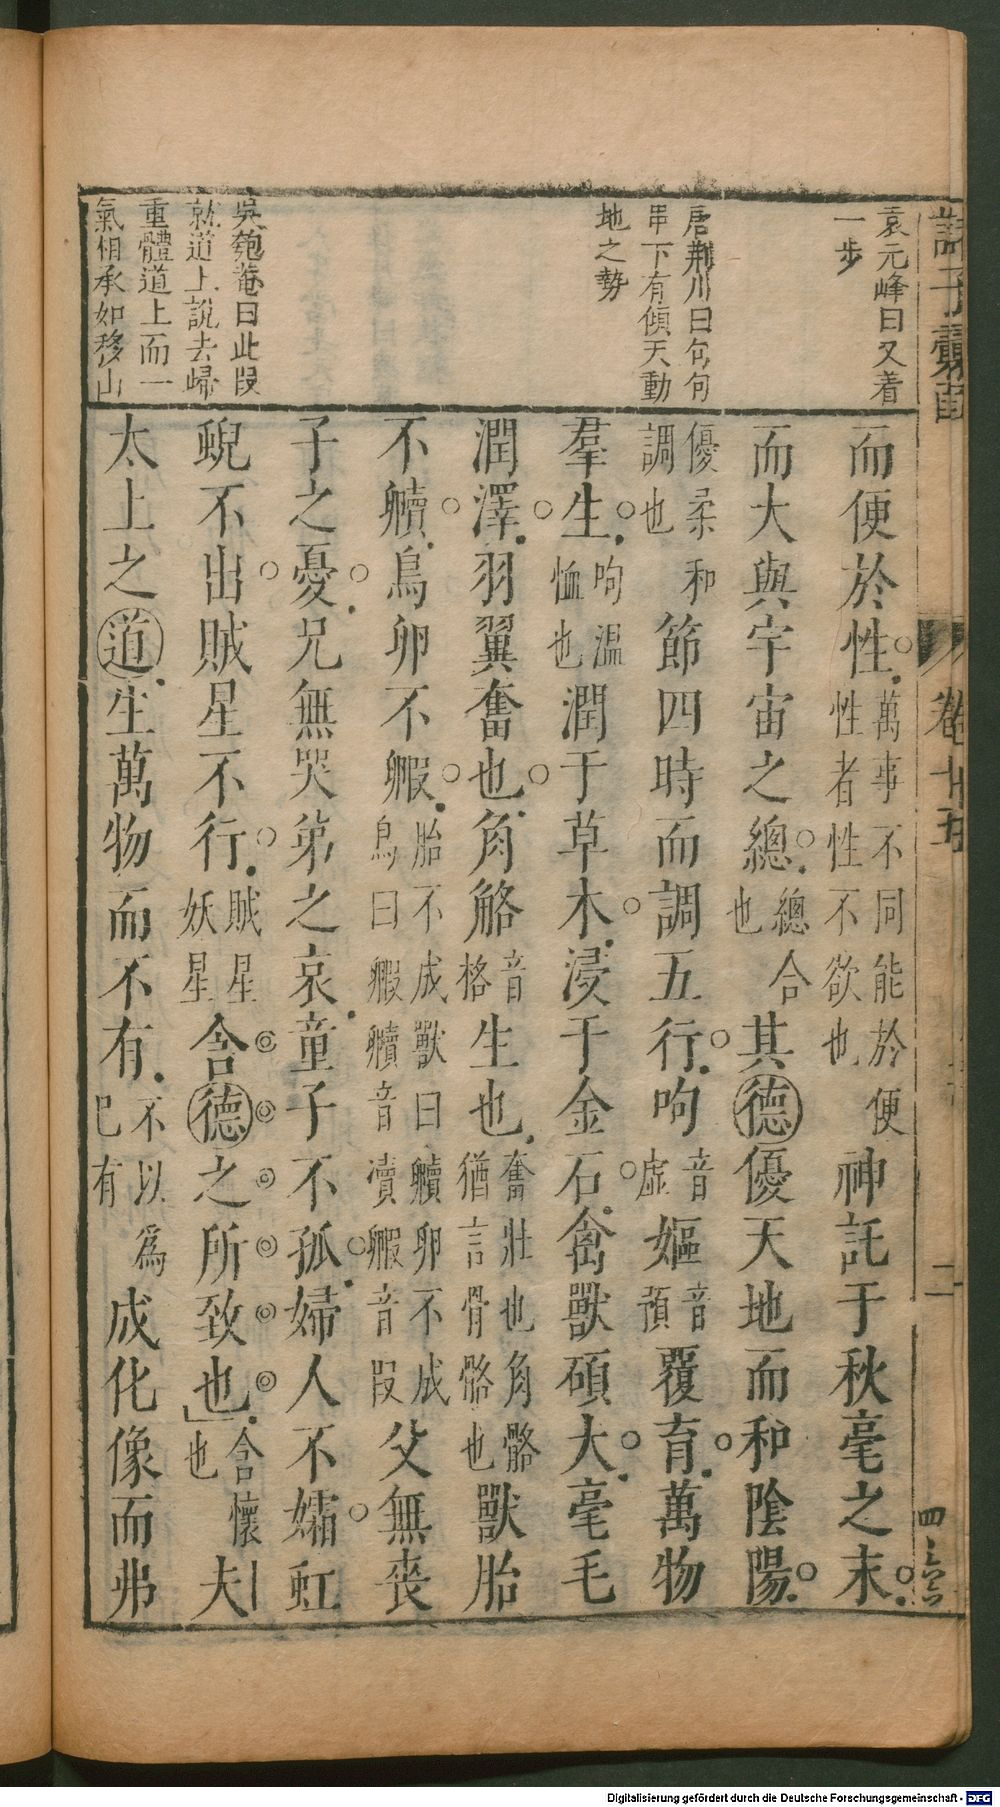 諸子彙函
卷十五
二
袁元峰曰又着
一步
唐荆川曰句句
串下有傾天動
地之勢
吳匏菴曰此段
就道上說去歸
重體道上而一
氣相承如移山
而便於性萬事不同能於便性者性不欲也神託于秋毫之末
而大與宇宙之總總合也其德優天地而和陰陽
優柔和調也節四時而調五行呴音虛嫗音預覆育萬物
羣生呴溫恤也潤于草木浸于金石禽獸碩大毫毛
潤澤羽翼奮也角觡音格生也奮壯也角骼猶言骨骼也獸胎
不殰鳥卵不毈胎不成獸曰殰卵不成鳥曰毈殰音瀆毈音段父無喪
子之憂兄無哭弟之哀童子不孤婦人不孀虹
蜺不出賊星不行賊星妖星含德之所致也含懷也夫
太上之道生萬物而不有不以爲己有成化像而弗
Digitalisierung gefördert durch die Deutsche Forschungsgemeinschaft - DFG